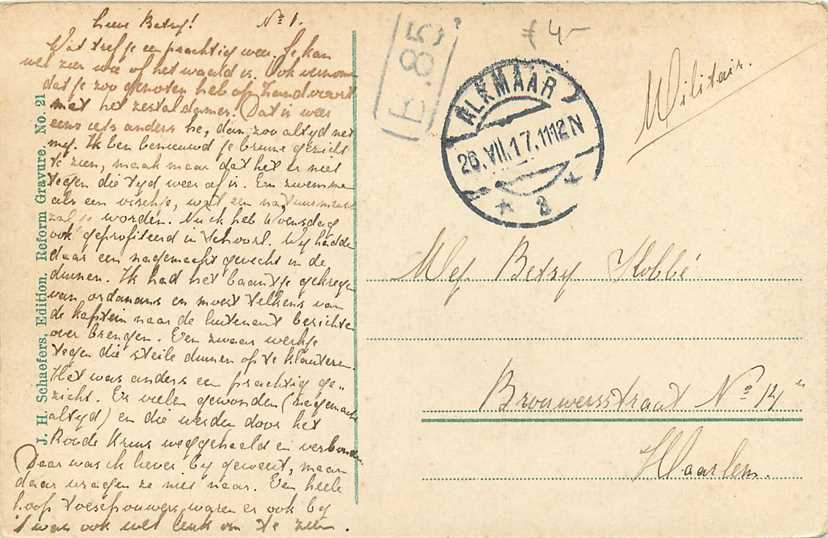 Lieve Betsy! No 1.
Wat tref je een prachtig weer. Je kan
wel zien wie of het waard is. Ook vernomen
dat je zoo genoten heb op handvoort
met het zestal dames. Dat is weer
eens iets anders he, dan zoo altyd met
my. Ik ben benieuwd je bruine gezicht
te zien, maak maar dat het er niet
tegen die tyd weer af is. En zwemmen
als een vischje, wat een
zal je worden. Nu ik heb Woensdag
ook geprofiteerd in Schoorl. Wy hadden
daar een nagemaakt gevecht in de
duinen. Ik had het baantje gekregen
van ordonans en moest telkens van
de kapitein naar de luitenant berichten
over brengen. Een zwaar werkje
tegen die steile duinen op te klauteren.
Het was anders een prachtig ge-
zicht. Er vielen gewonden (nagemaakt
altyd) en die werden door het
Roode Kruis weggehaald en verbonden
Daar was ik liever by geweest, maar
daar vragen ze niet naar. Een heele
hoop toeschouwers waren er ook by
't was ook wel leuk om te zien.
J. H. Schaefers, Edition. Reform Gravure. No. 21
E.85
f 4-
ALKMAAR
26.VII.17.11-12N
* 3 *
Militair.
Mej Betsy Kobbé
Brouwersstraat No 12
Haarlem.